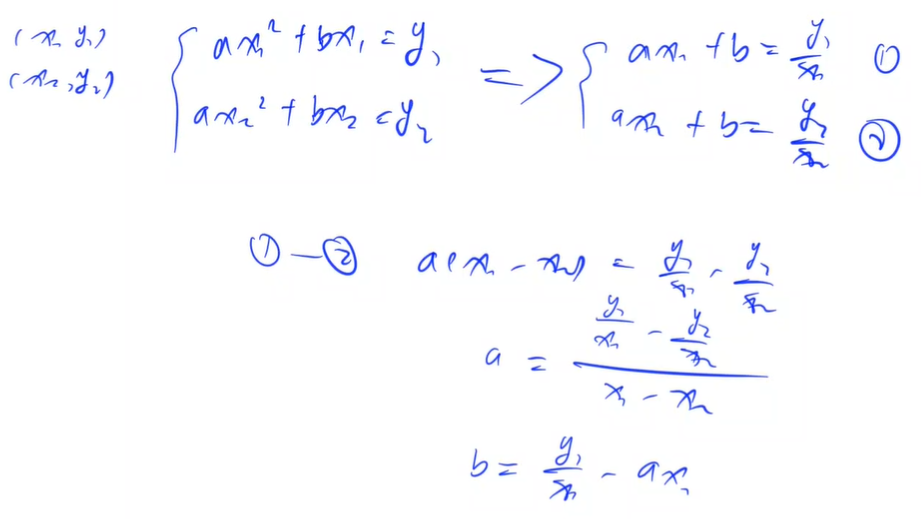 (x₁ y₁)
(x₂, y₂)
{ ax₁² + bx₁ = y₁
ax₂² + bx₂ = y₂
=> { ax₁ + b = y₁/x₁ ①
ax₂ + b = y₂/x₂ ②
① — ② a(x₁ - x₂) = y₁/x₁ - y₂/x₂
a = (y₁/x₁ - y₂/x₂)/(x₁ - x₂)
b = y₁/x₁ - ax₁